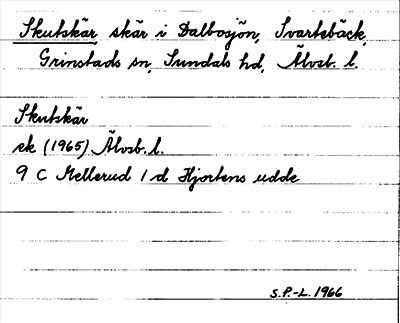 Skutskär, skär i Dalbosjön, Svartebäck,
Grinstads sn, Sundals hd, Älvsb. l.
Skutskär
ek (1965) Älvsb. l.
9 C Mellerud 1 d Hjortens udde
S.P.-L. 1966